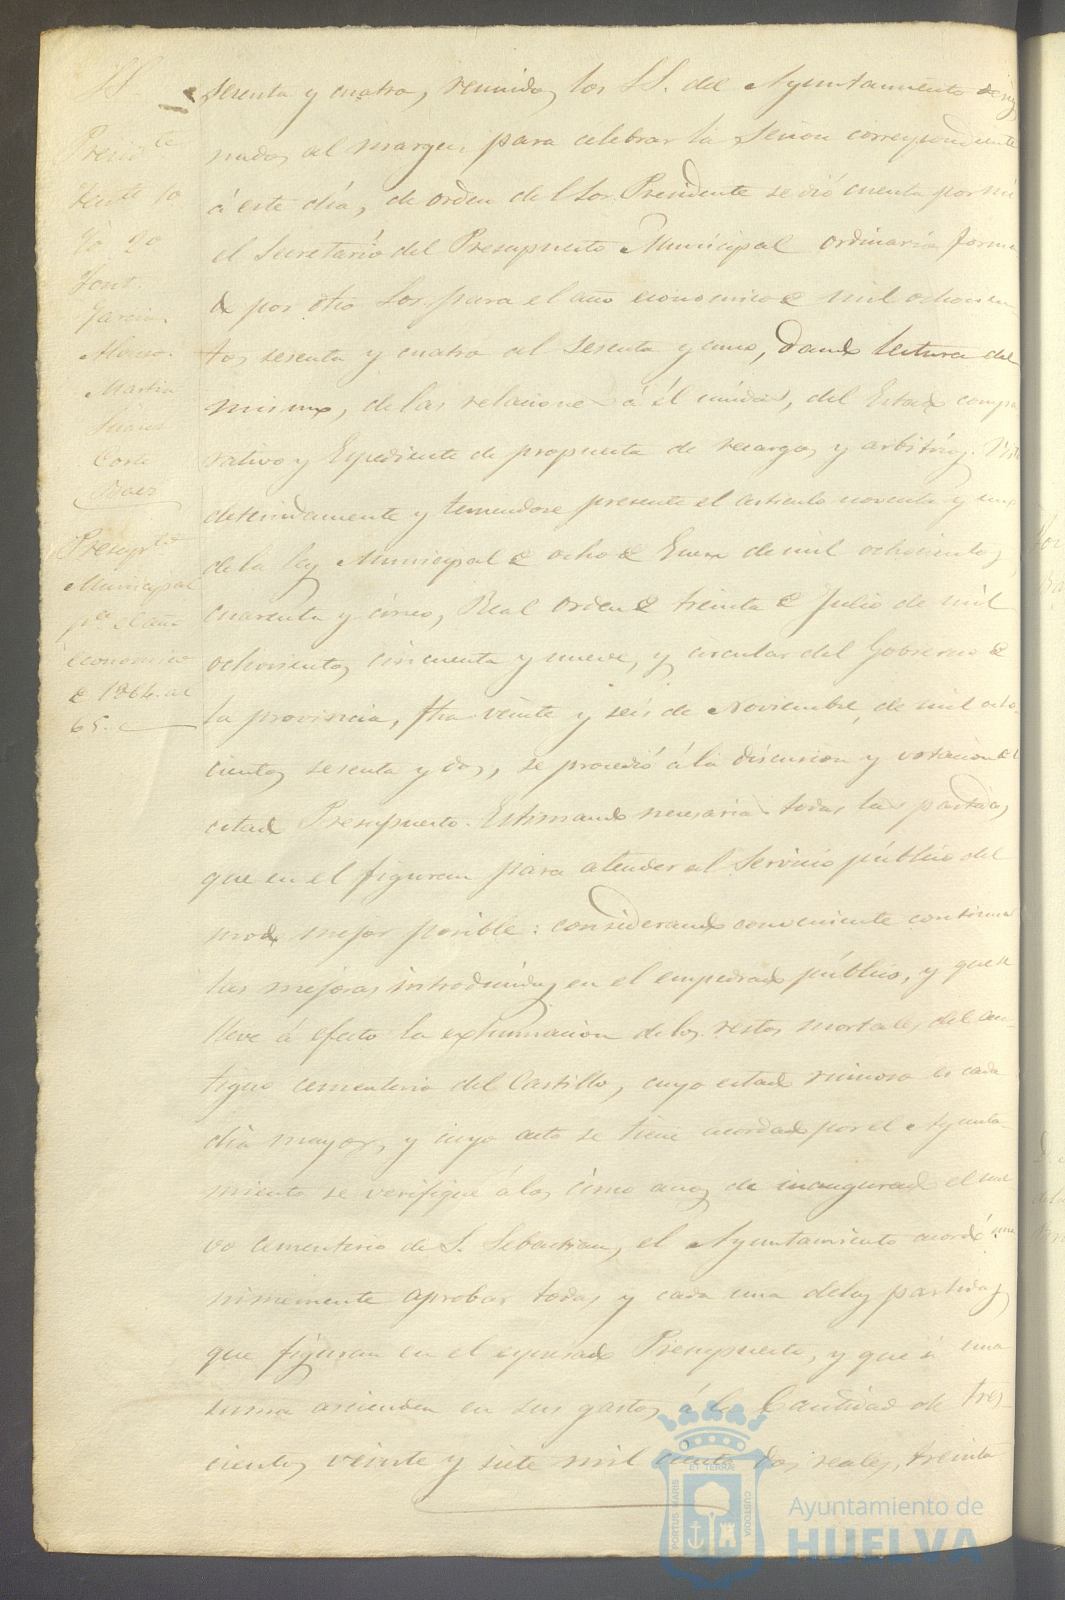 SS.
Presid.te
Tente 1º
Yd 2º
Font.
Garcia.
Alonso.
Martin
Suarez
Corte
Baez
Presupto
Municipal
pª el año
economico
de 1864. al
65.
sesenta y cuatro, reunidos los SS. del Ayuntamiento desig
nados al margen para celebrar la Sesion correspondiente
á este día, de orden del Sor. Presidente se dió cuenta por mi
el Secretário del Presupuesto Municipal ordinario forma
do por dho Sor. para el año economico de mil ochocien
tos sesenta y cuatro al sesenta y cinco, dando lectura del
mismo, de las relaciones á él unidas, del Estado compa
rativo y Espediente de propuesta de recargos y arbitrios. Visto
detenidamente y teniendose presente el articulo noventa y uno
de la ley Municipal de ocho de Enero de mil ochocientos
cuarenta y cinco, Real orden de treinta de Julio de mil
ochocientos cincuenta y nueve, y circular del Gobierno de
la provincia, fha veinte y seis de Noviembre de mil ocho-
cientos sesenta y dos, se procedió á la discusion y votacion del
citado Presupuesto. Estimando necesarias todas las partidas
que en el figuran para atender al Servicio público del
modo mejor posible: considerando conveniente continuar
las mejoras introducidas en el empedrado público, y que se
lleve á efecto la exhumacion de los restos mortales del an-
tiguo cementerio del Castillo, cuyo estado ruinoso es cada
día mayor, y cuyo acto se tiene acordado por el Ayunta-
miento se verifique á los cinco años de inaugurado el nue
vo cementerio de S. Sebastian, el Ayuntamiento acordó una
nimemente aprobar todas y cada una de las partidas
que figuran en el espresado Presupuesto, y que á una
suma ascienden en sus gastos á la Cantidad de tres-
cientos veinte y siete mil ciento dos reales, treinta
PORTUS MARIS
ET TERRÆ
CUSTODIA
Ayuntamiento de
HUELVA